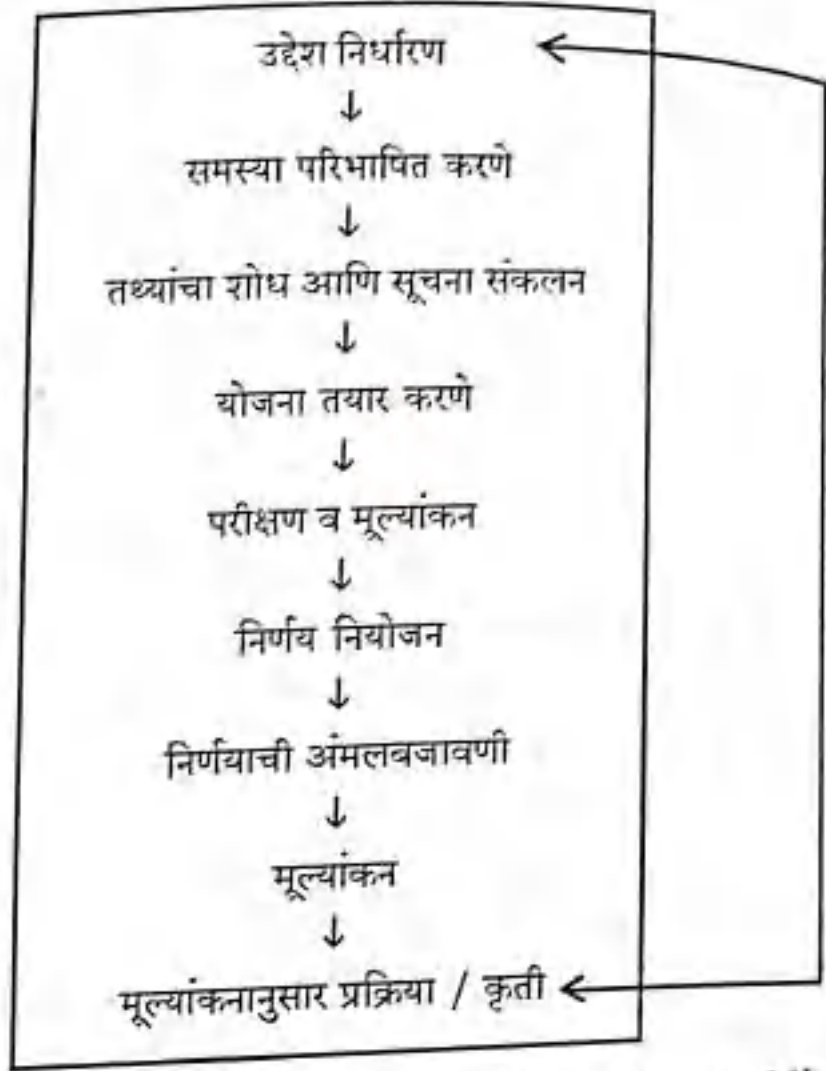 उद्देश निर्धारण
↓
समस्या परिभाषित करणे
↓
तथ्यांचा शोध आणि सूचना संकलन
↓
योजना तयार करणे
↓
परीक्षण व मूल्यांकन
↓
निर्णय नियोजन
↓
निर्णयाची अंमलबजावणी
↓
मूल्यांकन
↓
मूल्यांकनानुसार प्रक्रिया / कृती